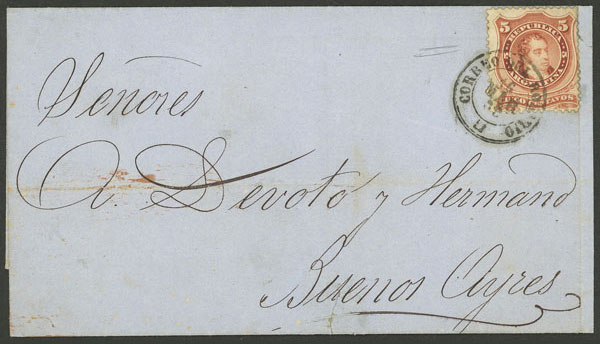 5 REPUBLICA 5
ARGENTINA
CORREO DEL
Señores
A. Devoto y Hermano
Buenos Ayres